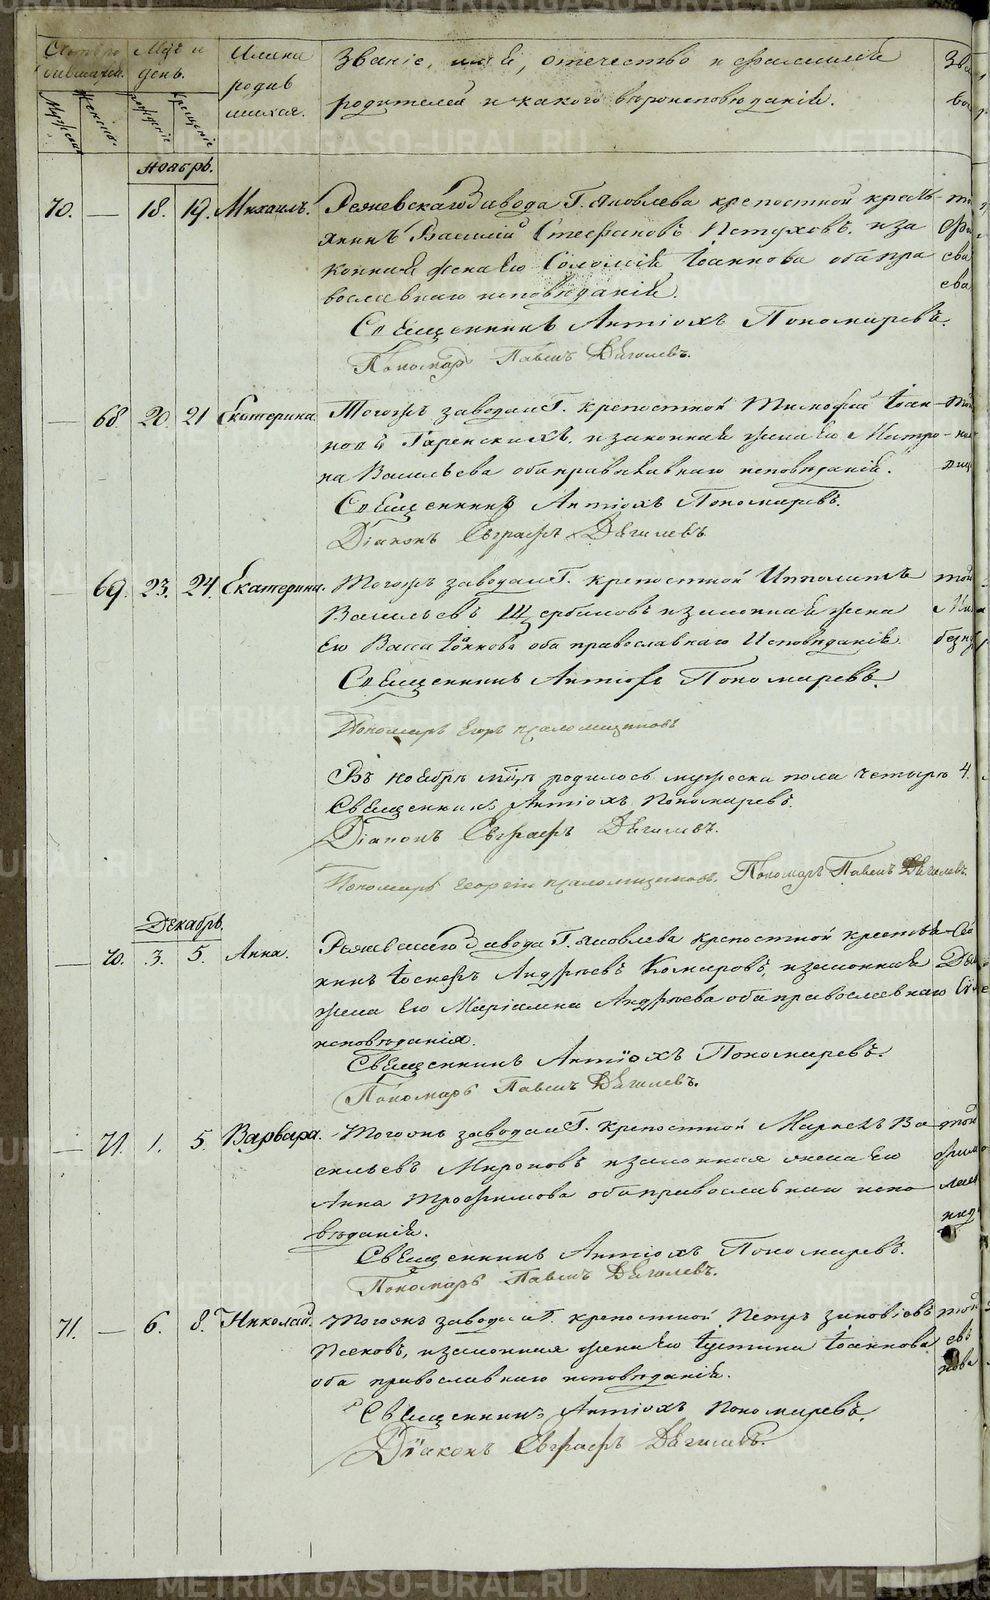 Мцъ и день.
Имена родившихся.
Званіе, имя, отчество и фамилія
родителей и какого вѣроисповѣданія.
Мужеска
Женска
рожденіе
крещеніе
Ноябрь.
70. — 18. 19. Михаилъ. Режевскаго завода Г. Яковлева крепостной кресть-
янинъ Василий Стефановъ Петуховъ, и за
конная жена его Соломія Іоаннова оба пра
вославнаго исповѣданія.
Священникъ Антіохъ Пономаревъ.
Пономарь Павелъ Дягилевъ.
— 68. 20. 21 Екатерина. Тогожъ завода и Г. крепостной Тимофей Іоан-
новъ и законная жена его Матро-
на Васильева оба православнаго исповѣданія.
Священникъ Антіохъ Пономаревъ.
Діаконъ Евграфъ Дягилевъ
— 69. 23. 24. Екатерина. Тогожъ завода и Г. крепостной Ипполитъ
Васильевъ Щербаковъ и законная жена
его Васса Іоаннова оба православнаго Исповѣданія
Священникъ Антіохъ Пономаревъ.
Пономарь Егоръ
Въ ноябрѣ мцѣ родилось мужеска пола четыре 4.
Священникъ Антіохъ Пономаревъ.
Діаконъ Евграфъ Дягилевъ.
Пономарь Георгій Пономарь Павелъ Дягилевъ.
Декабрь.
— 70. 3. 5. Анна. Режевскаго завода Г. Яковлева крепостной кресть-
янинъ Іосифъ Андреевъ Комаровъ, и законная
жена его Маріамна Андреева оба православнаго
исповѣданія.
Священникъ Антіохъ Пономаревъ.
Пономарь Павелъ Дягилевъ.
— 71. 1. 5. Варвара. Тогожъ завода и Г. крепостной Маркелъ Ва-
сильевъ Мироновъ и законная жена его
Анна Трофимова оба православнаго испо-
вѣданія.
Священникъ Антіохъ Пономаревъ.
Пономарь Павелъ Дягилевъ.
71. — 6. 8. Николай. Тогожъ завода и Г. крепостной Петръ Зиновіевъ
и законная жена его Іустина Іоаннова
оба православнаго исповѣданія.
Священникъ Антіохъ Пономаревъ.
Діаконъ Евграфъ Дягилевъ.
METRIKI.GASO-URAL.RU